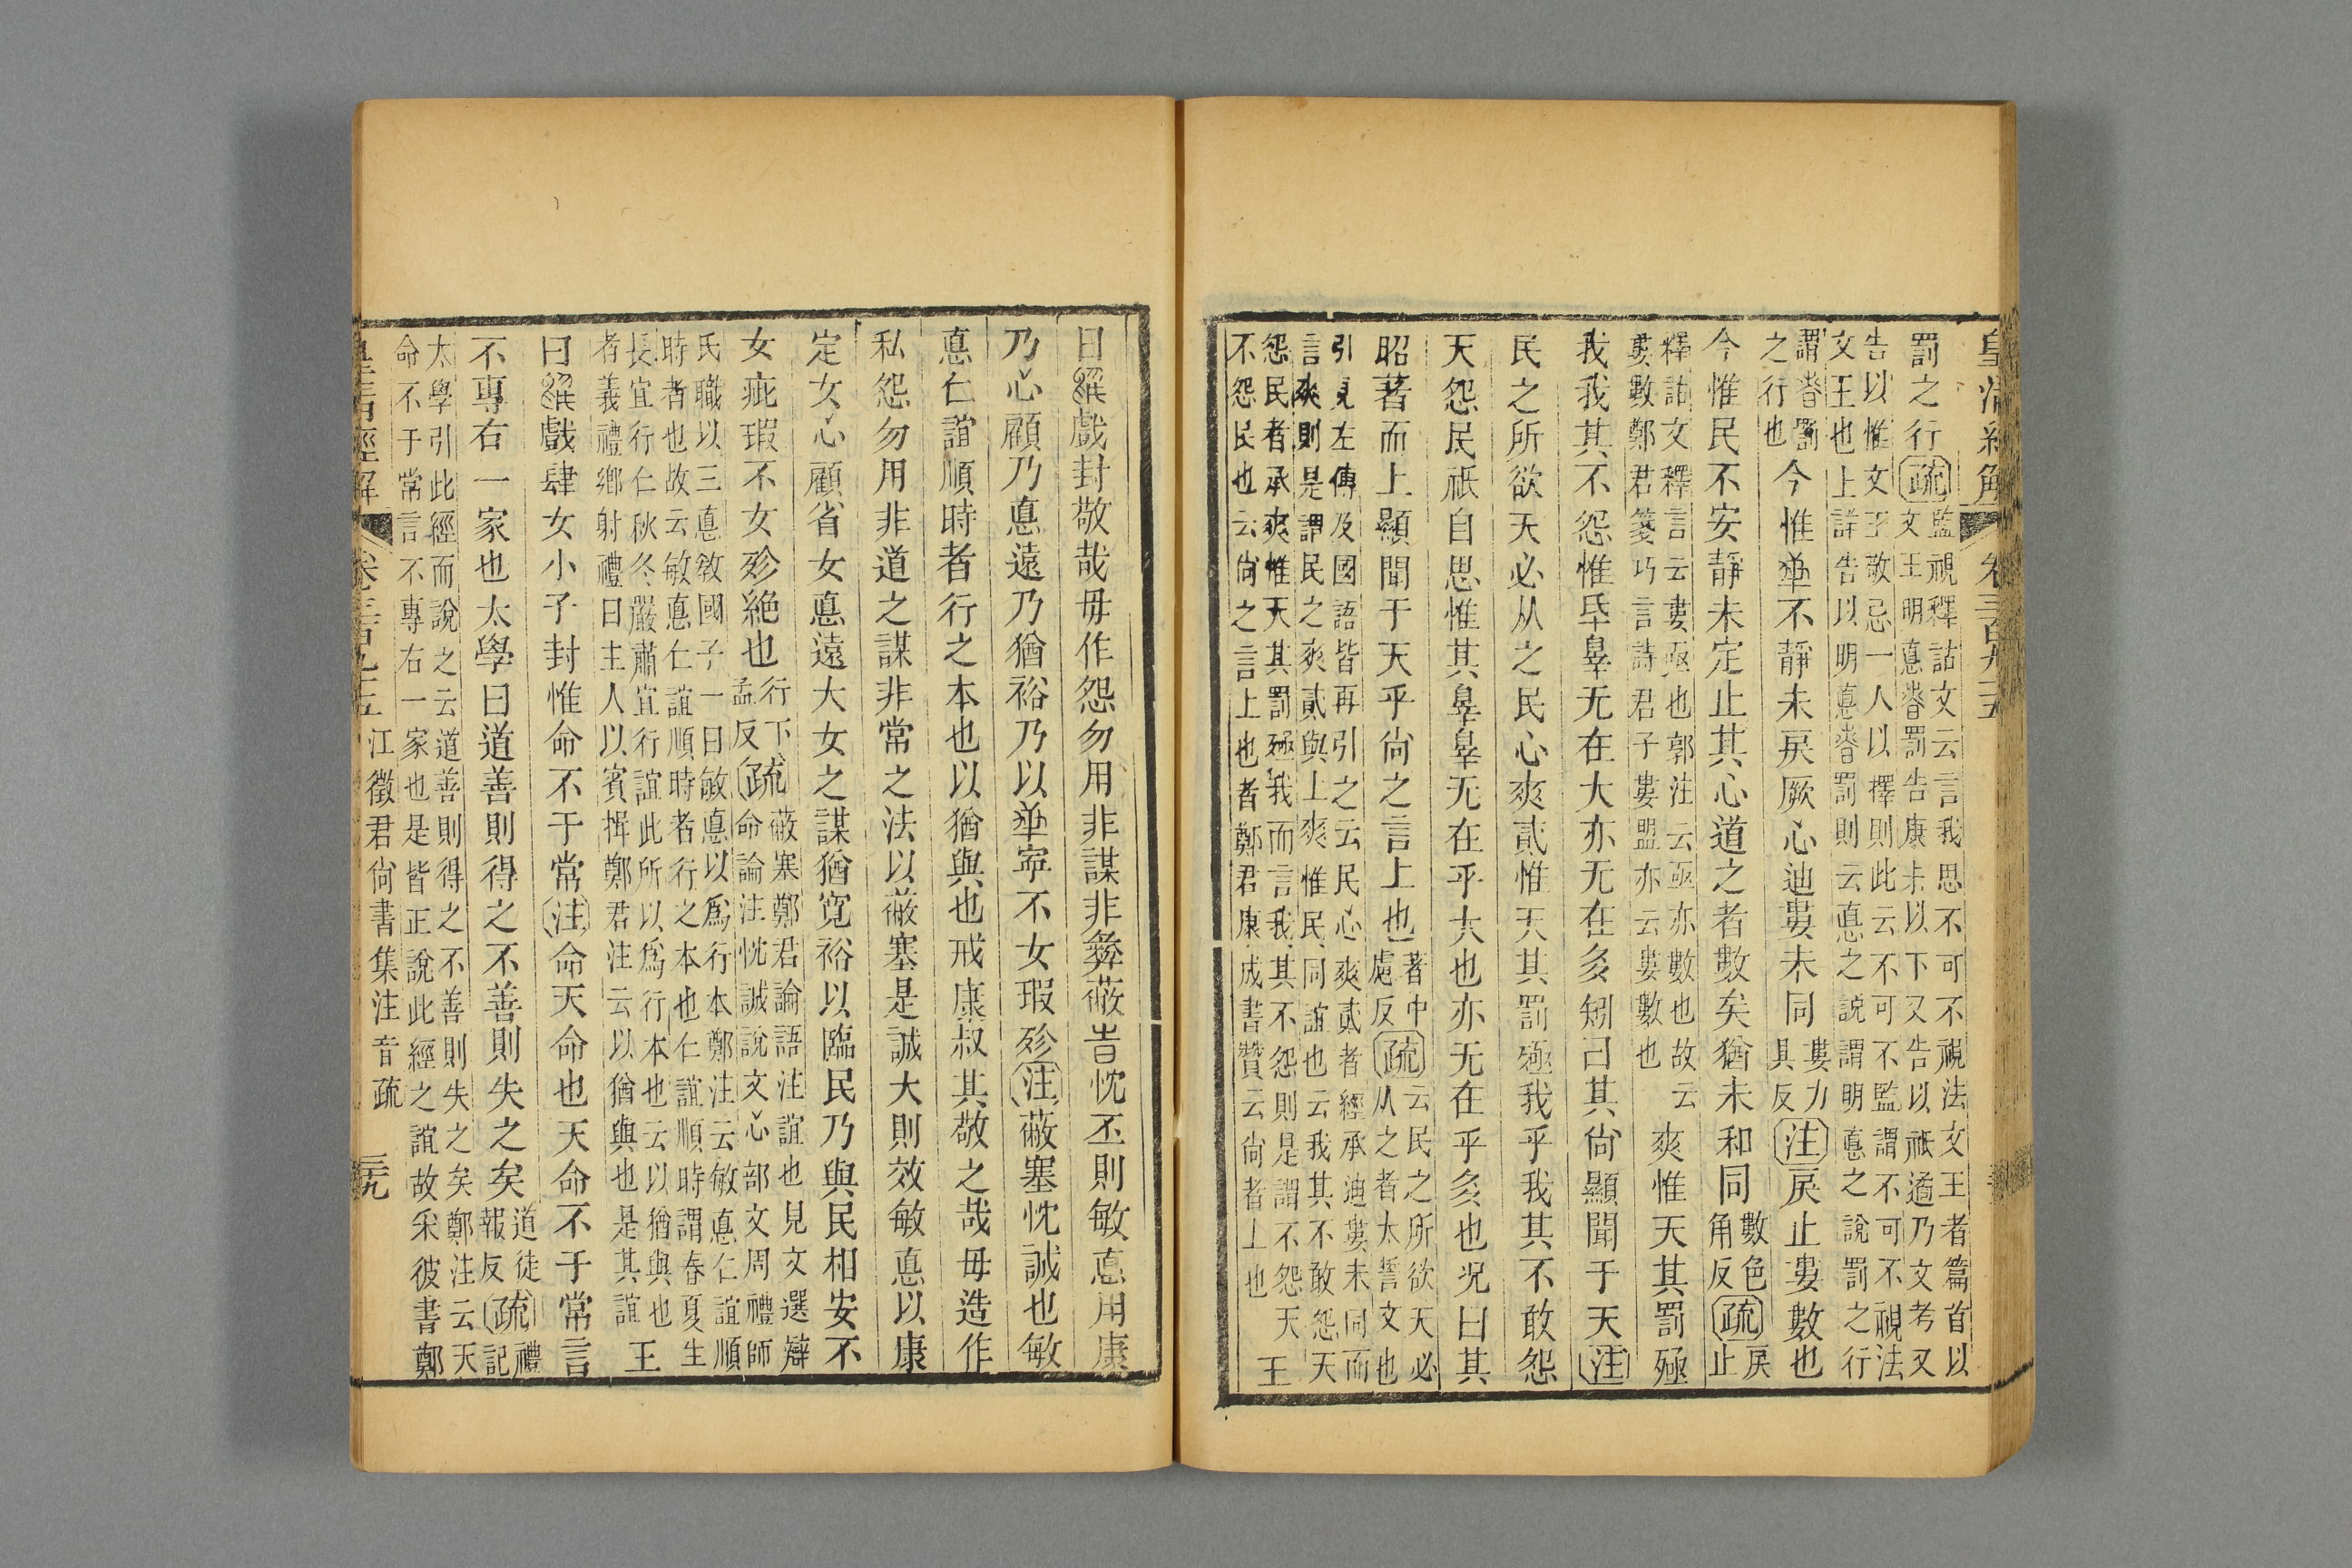 皇清經解 卷三百九十五
罰之行疏監視釋詁文云言我思不可不視法文王者篇首以
文王明悳昚罰告康尗以下又告以祗遹乃文考又
告以惟文王敬忌一人以擇則此云不可不監謂不可不視法
文王也上詳告以明悳昚罰則云悳之説謂明悳之說罰之行
謂昚罰
之行也
今惟不靜未戾厥心迪婁未同婁力具反注戾止婁數也
今惟民不安靜未定止其心道之者數矣猶未和同數色角反疏戾止
釋詁文釋言云婁亟也郭注云亟亦數也故云
婁數鄭君箋巧言詩君子婁盟亦云婁數也
爽惟天其罰殛
我我其不怨惟氒辠无在大亦无在多矧曰其尙顯聞于天注
民之所欲天必从之民心爽貳惟天其罰殛我乎我其不敢怨
天怨民祇自思惟其辠辠无在乎大也亦无在乎多也况曰其
昭著而上顯聞于天乎尙之言上也著中慮反疏云民之所欲天必
从之者太誓文也
引見左傳及國語皆再引之云民心爽貳者經承迪婁未同而
言爽則是謂民之爽貳與上爽惟民同誼也云我其不敢怨天
怨民者承爽惟天其罰殛我而言我其不怨則是謂不怨天
不怨民也云尙之言上也者鄭君康成書贊云尙者上也
王
曰戲封敬哉毋作怨勿用非謀非彝蔽旹忱丕則敏悳用康
乃心顧乃悳遠乃猶裕乃以寍不女瑕殄注蔽塞忱誠也敏
悳仁誼順時者行之本也以猶與也戒康叔其敬之哉毋造作
私怨勿用非道之謀非常之法以蔽塞是誠大則效敏悳以康
定女心顧省女悳遠大女之謀猶寬裕以臨民乃與民相安不
女疵瑕不女殄絕也行下孟反疏蔽塞鄭君論語注誼也見文選辯
命論注忱誠說文心部文周禮師
氏職以三悳敎國子一曰敏悳以爲行本鄭注云敏悳仁誼順
時者也故云敏悳仁誼順時者行之本也仁誼順時謂春夏生
長宜行仁秋冬嚴肅宜行誼此所以爲行本也云以猶與也
者義禮鄉射禮曰主人以賓揖鄭君注云以猶與也是其誼
王
曰戲肆女小子封惟命不于常注命天命也天命不于常言
不專右一家也太學曰道善則得之不善則失之矣道徒報反疏禮記
太學引此經而說之云道善則得之不善則失之矣鄭注云天
命不于常言不專右一家也是皆正說此經之誼故采彼書鄭
皇清經解 卷三百九十五 江徵君尙書集注音疏 三九